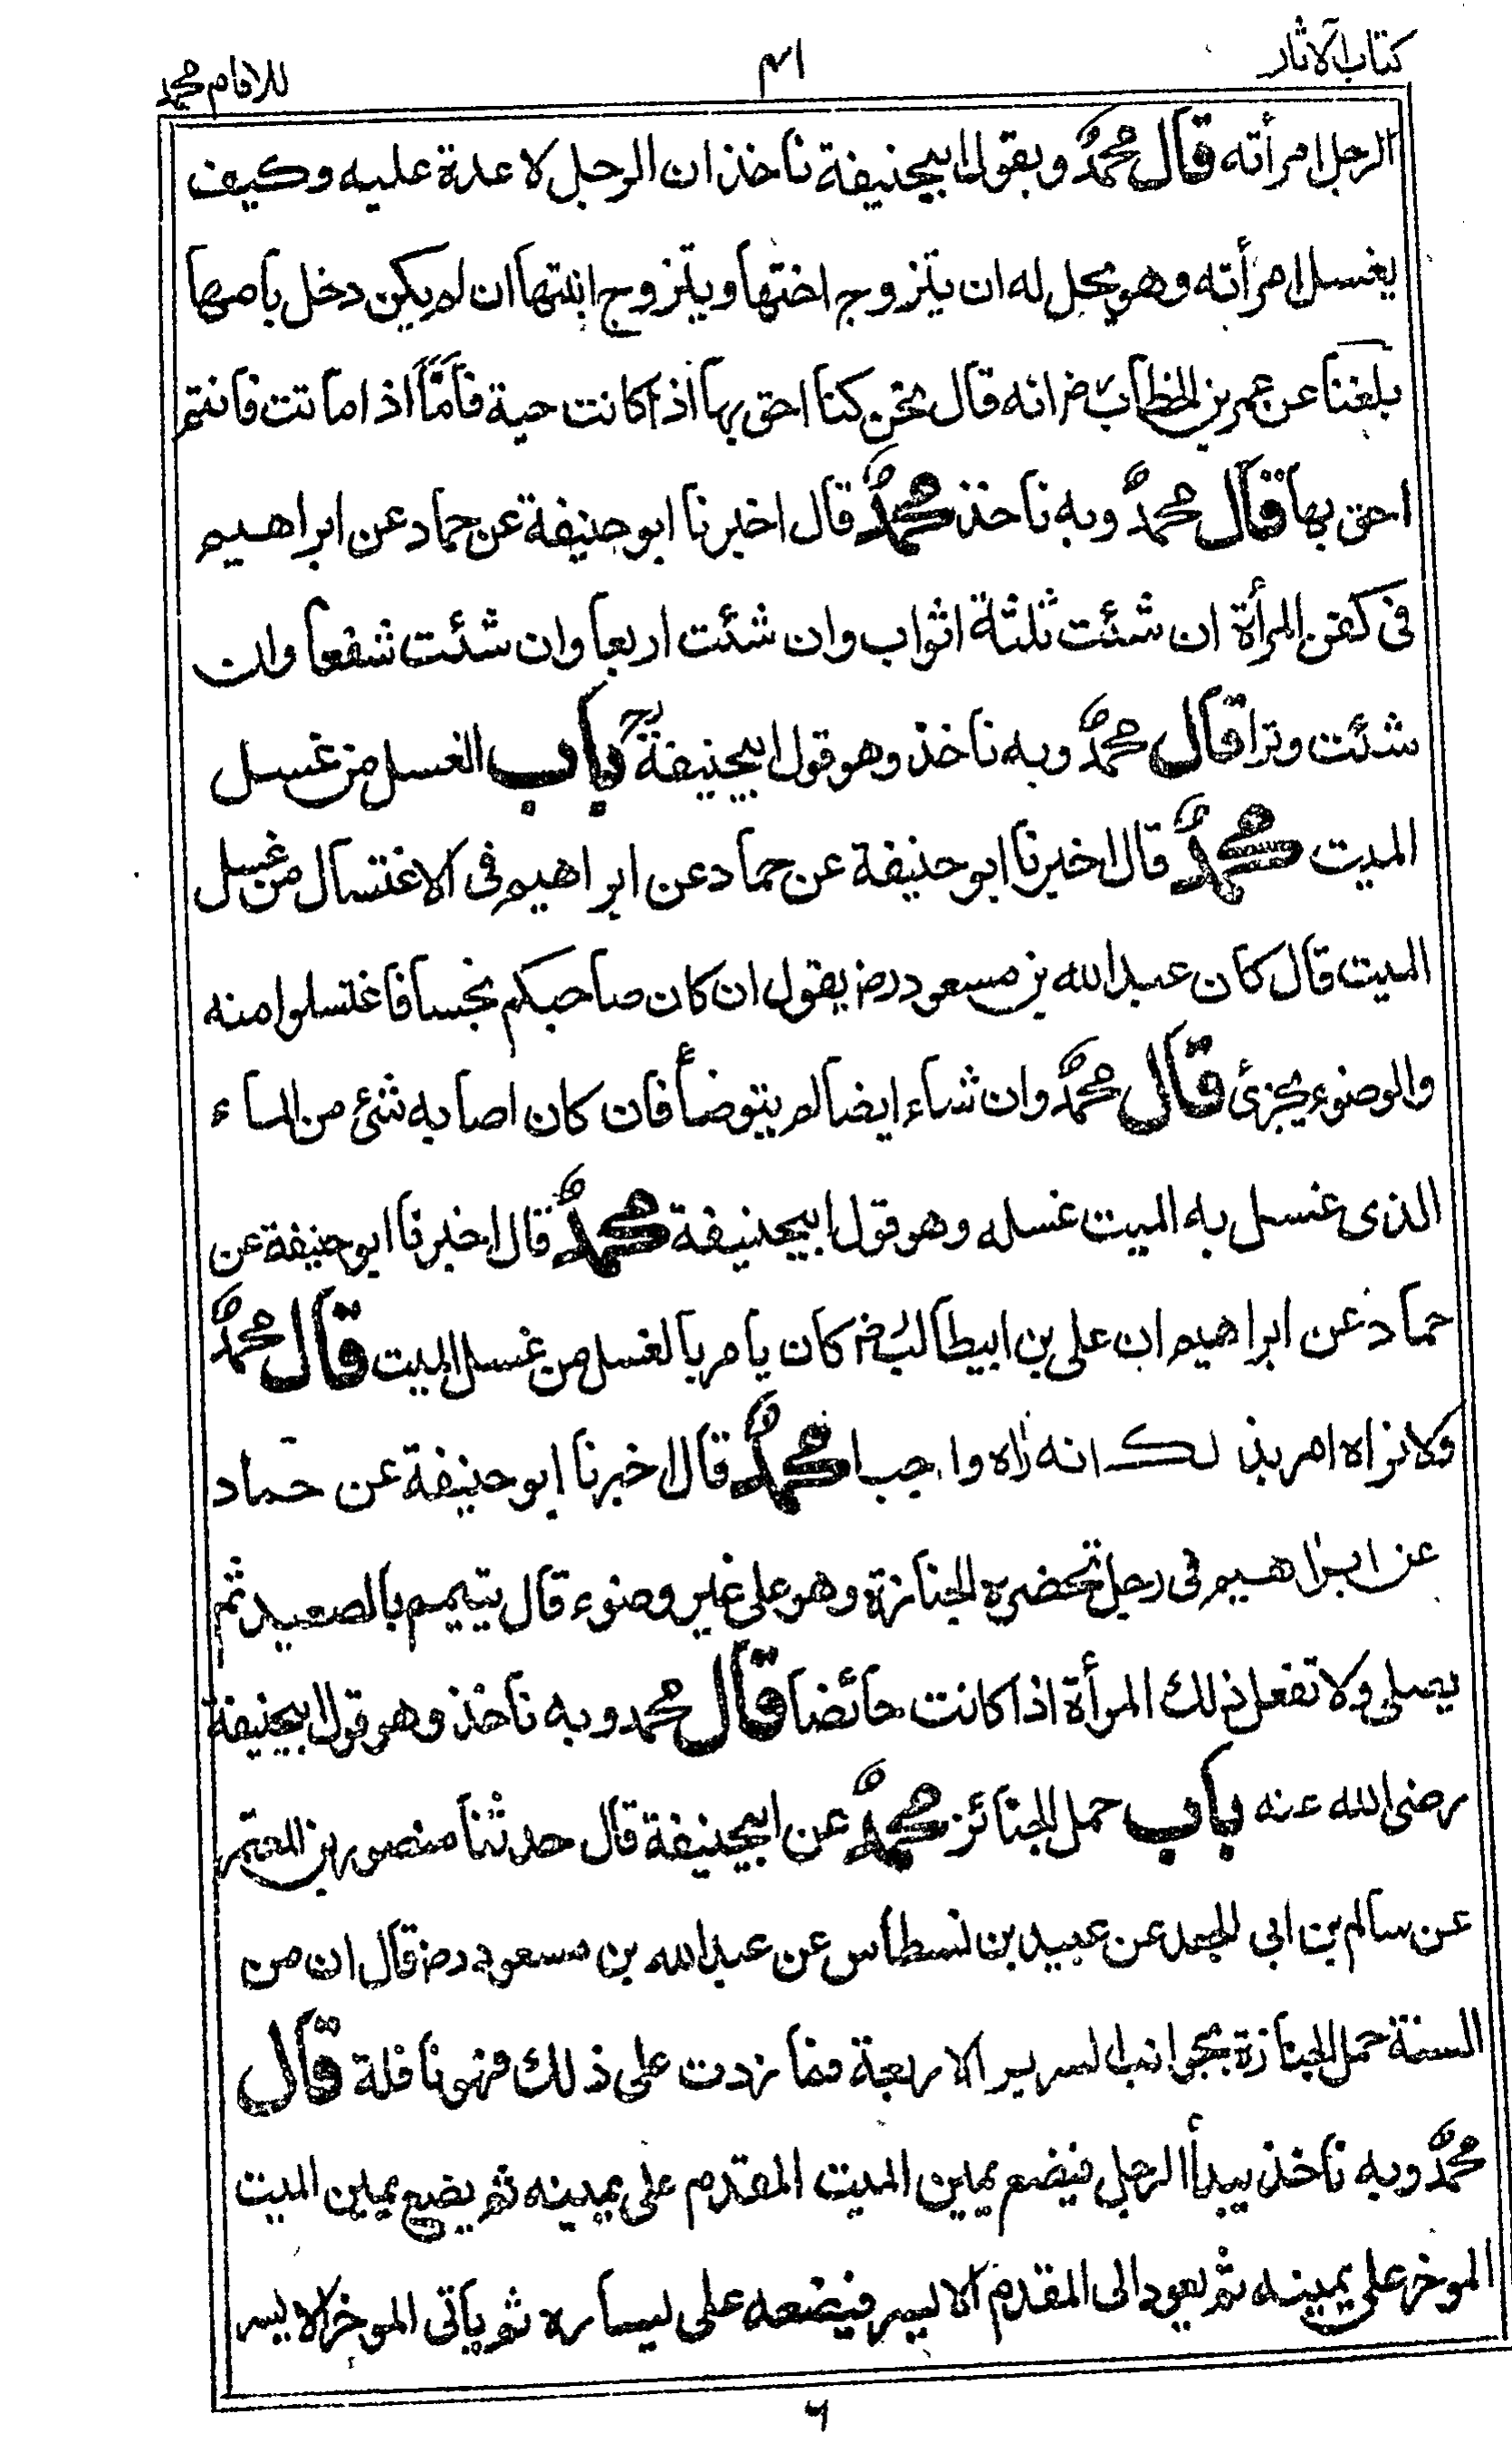 كتاب الآثار
٤١
للامام محمد
الرجل امرأته قال محمدؒ وبقول ابيحنيفة ناخذ ان الرجل لا عدة عليه وكيف
يغسل امرأته وهو يحل له ان يتزوج اختها ويتزوج ابنتها ان لم يكن دخل بامها
بلغنا عن عمر بن الخطابؓ انه قال نحن كنا احق بها اذا كانت حية فأمّا اذا ماتت فانتم
احق بها قال محمدؒ وبه ناخذ محمدؒ قال اخبرنا ابو حنيفة عن حماد عن ابراهيم
فى كفن المرأة ان شئت ثلثة اثواب وان شئت اربعا وان شئت شفعا وان
شئت وترا قال محمدؒ وبه ناخذ وهو قول ابيحنيفةؒ باب الغسل من غسل
الميت محمدؒ قال اخبرنا ابو حنيفة عن حماد عن ابراهيم فى الاغتسال من غسل
الميت قال كان عبد الله بن مسعود رضـ يقول ان كان صاحبكم نجسا فاغتسلوا منه
والوضوء يجزئ قال محمدؒ وان شاء ايضا لم يتوضأ فان كان اصابه شئ من الماء
الذى غسل به الميت غسله وهو قول ابيحنيفة محمدؒ قال اخبرنا ابو حنيفة عن
حماد عن ابراهيم ان على بن ابيطالبؓ كان يامر بالغسل من غسل الميت قال محمدؒ
ولا نراه امر بذلك انه رٰاه واجبا محمدؒ قال اخبرنا ابو حنيفة عن حماد
عن ابرٰاهيم فى رجل تحضره الجنازة وهو على غير وضوء قال يتيمم بالصعيد ثم
يصلى ولا تفعل ذلك المرأة اذا كانت حائضا قال محمد وبه ناخذ وهو قول ابيحنيفة
رضى الله عنه باب حمل الجنائز محمدؒ عن ابيحنيفة قال حدثنا منصور بن المعتمر
عن سالم بن ابى الجعد عن عبيد بن نسطاس عن عبد الله بن مسعود رضـ قال ان من
السنة حمل الجنازة بجوانب السرير الاربعة فما زدت على ذلك فهو نافلة قال
محمدؒ وبه ناخذ يبدأ الرجل فيضع يمين الميت المقدم على يمينه ثم يضع يمين الميت
الموخر على يمينه ثم يعود الى المقدم الايسر فيضعه على يساره ثم ياتى الموخر الايسر
٦